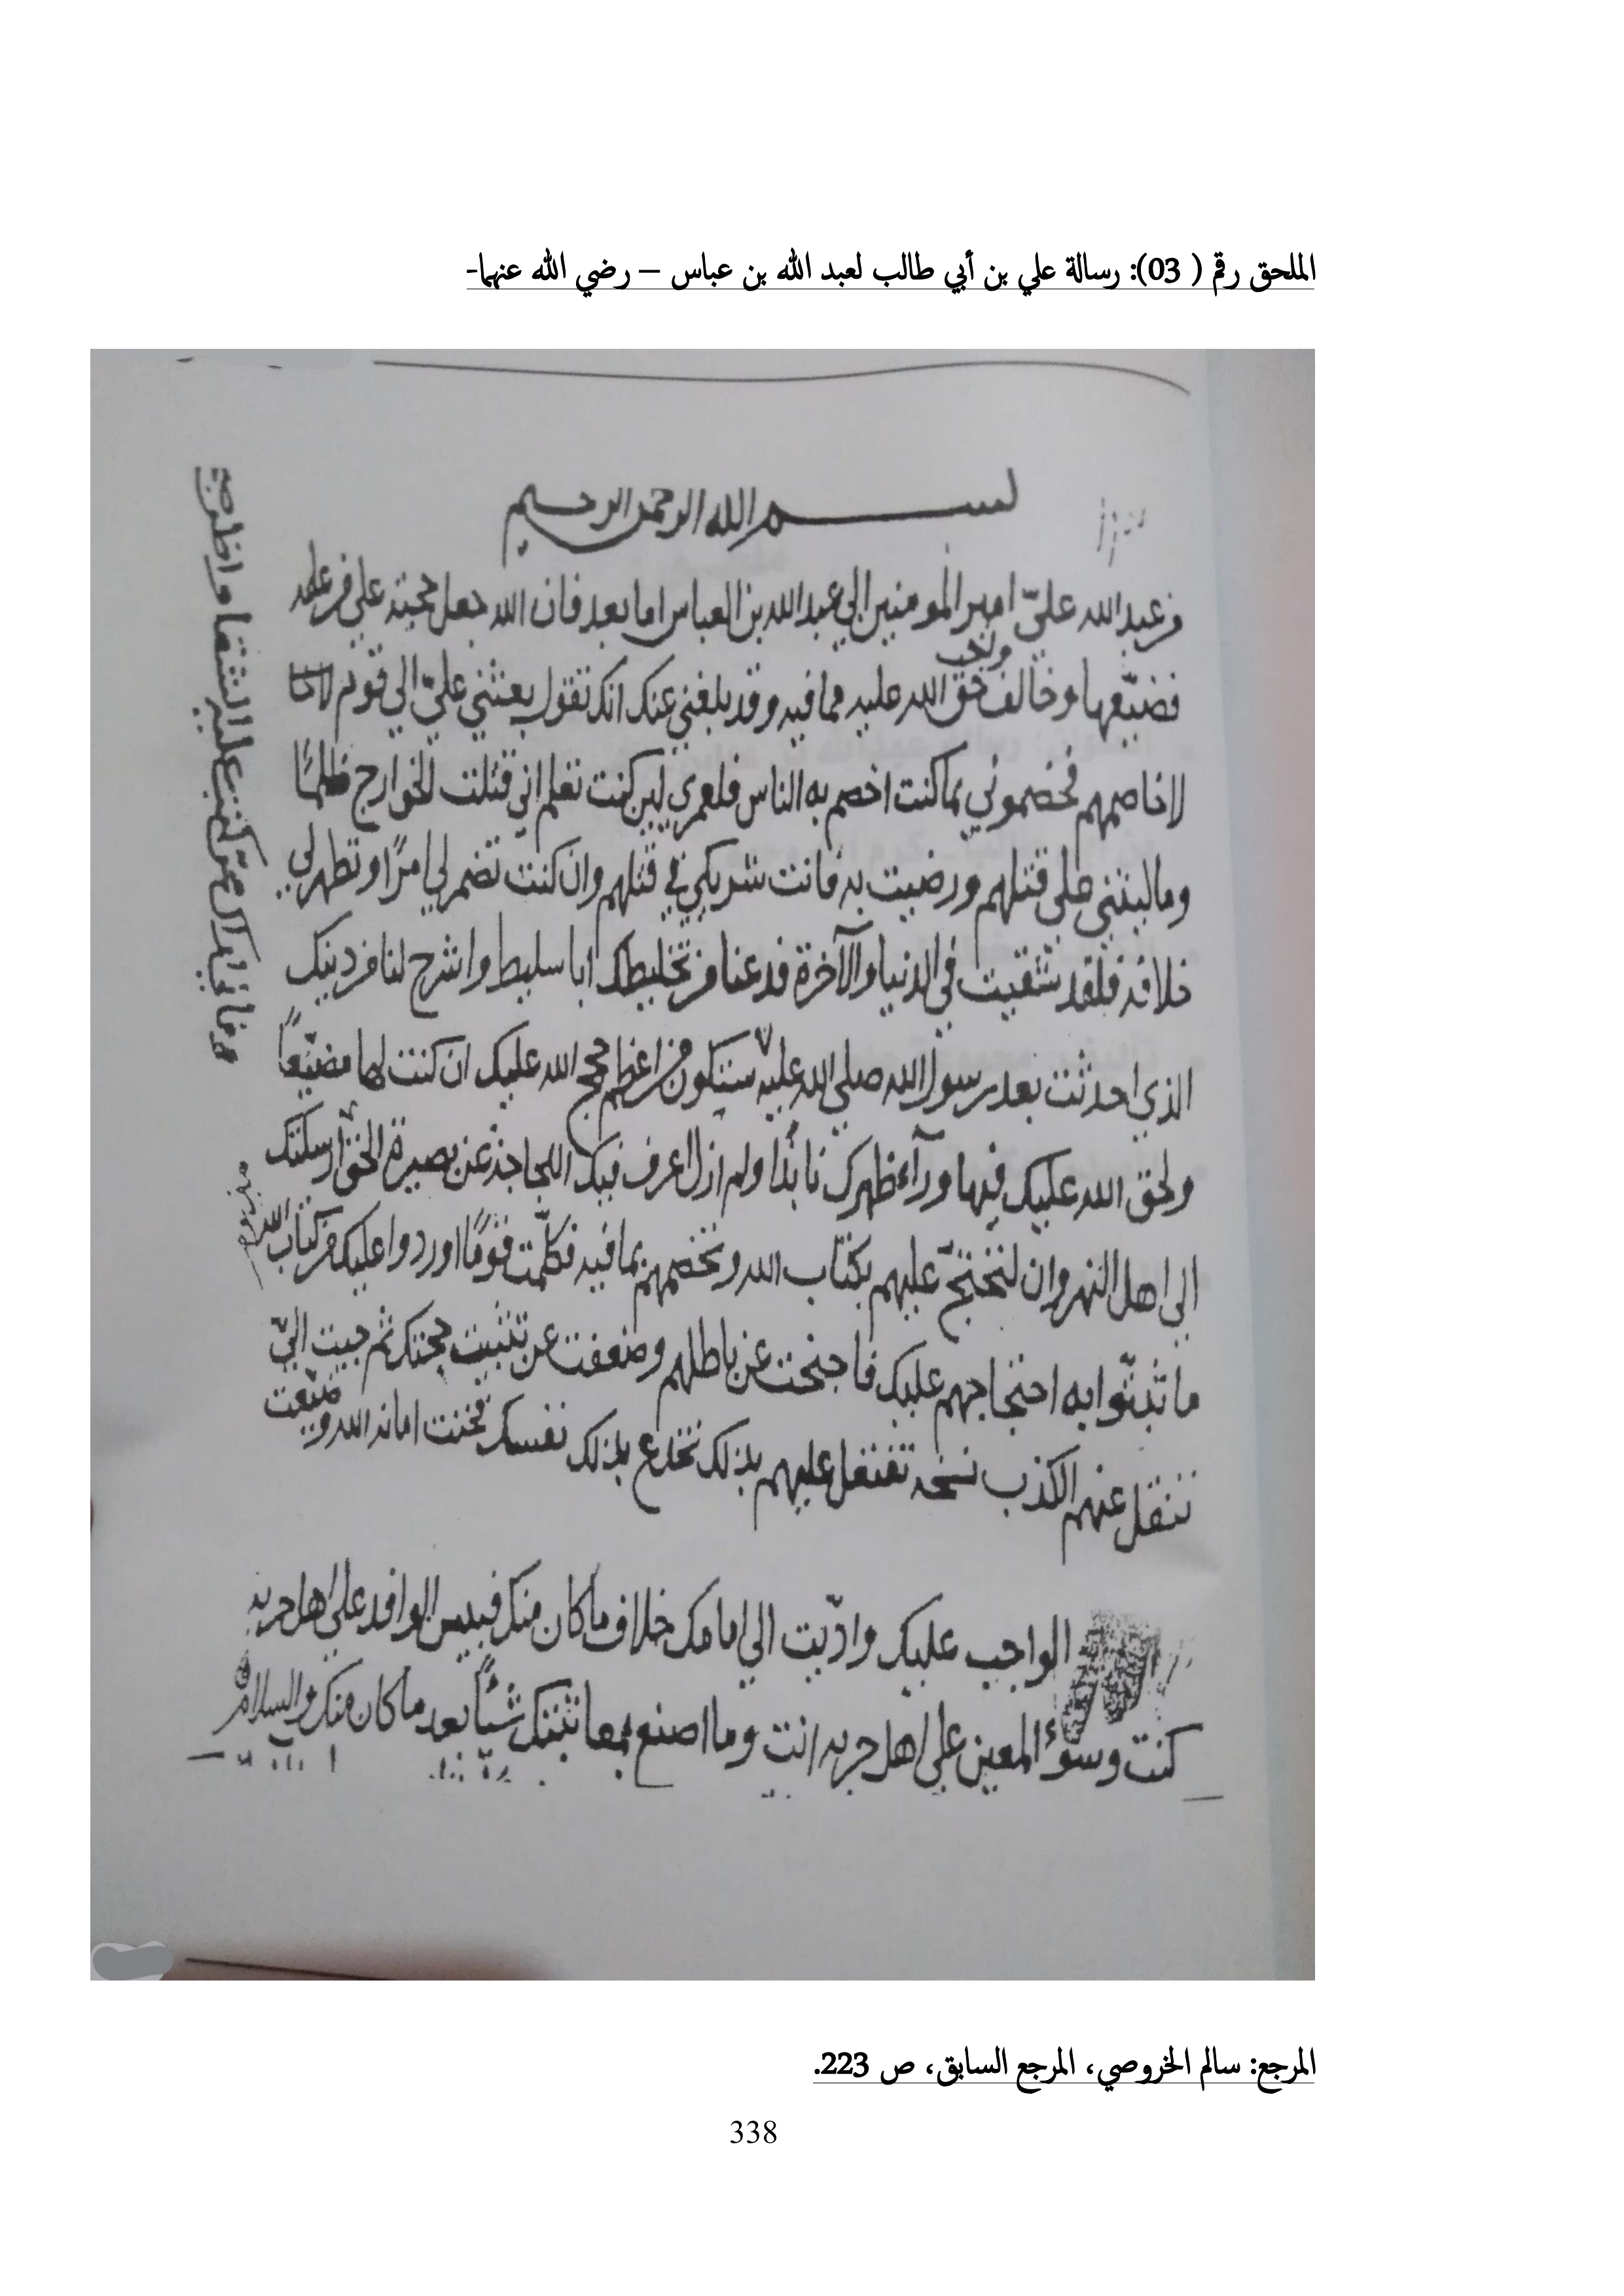 الملحق رقم ( 03): رسالة علي بن أبي طالب لعبد الله بن عباس – رضي الله عنهما-
بسم الله الرحمن الرحيم
من عبد الله عليّ امير المومنين الي عبد الله بن العباس اما بعد فان الله جعل حجته علي من علمه
فضيّعها وخالف حق الله عليه مما فيه وقد بلغني عنك انك تقول بعثني عليّ الي قوم
لاخاصمهم فخصموني بما كنت اخصم به الناس فلعمري لين كنت تعلم اني قتلت الخوارج ظلمًا
وماليتني علي قتلهم ورضيت به فانت شريكي في قتلهم وان كنت تضمر لي امرًا وتظهر لي
خلافه فلقد شقيت في الدنيا والآخرة فدعنا من تخليطك ابا سليط واشرح لنا من دينك
الذي احدثت بعد رسول الله صلي الله عليه ستكون من اعظم حجج الله عليك ان كنت لها مضيّعاً
ولحق الله عليك فيها ورآء ظهرك نابذًا ولم ازل اعرف فيك اللجاجة عن بصيرة الحق ارسلتك
الي اهل النهروان لتحتجّ عليهم بكتاب الله وتخصمهم بما فيه فكلّمت قومًا اوردوا عليك من كتاب الله
ما ثبتوا به احتجاجهم عليك فاجنحت عن باطلهم وضعفت عن تثبيت حجتك ثم جيت اليّ
تنقل عنهم الكذب نسخة تفتعل عليهم بذلك تخدع بذلك نفسك فخنت امانة الله وضيّعت
الواجب عليك وادّيت الي امامك خلاف ما كان منك فبيس الوافد علي اهل حربه
كنت وسوء المعين علي اهل حربه انت وما اصنع بمعاتبتك شيًا بعد ما كان منك والسلام
المرجع: سالم الخروصي، المرجع السابق، ص 223.
338